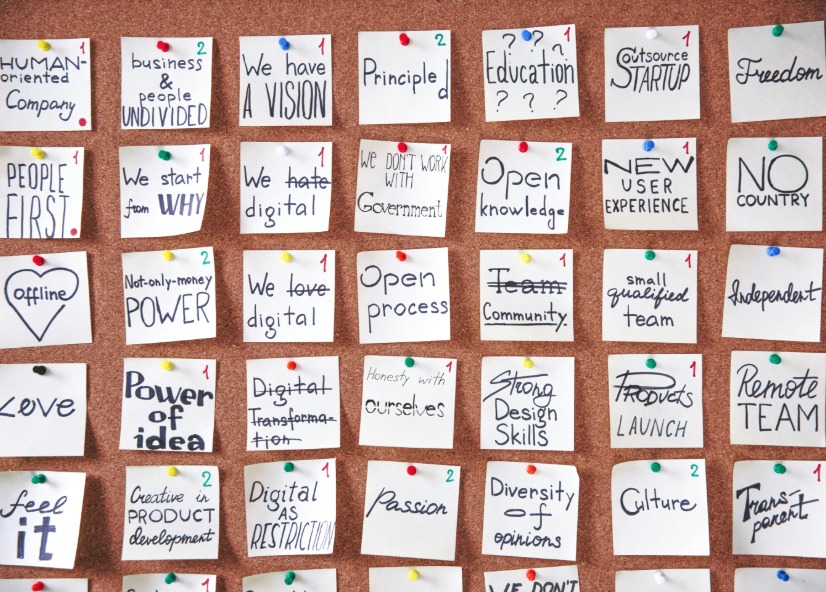 HUMAN- 1
oriented
Company
business 2
&
people
UNDIVIDED
We have 1
A VISION
Principled 2
? ? ? 1
Education
? ? ?
Outsource 1
STARTUP
Freedom
PEOPLE 1
FIRST.
We start 1
from WHY
We hate 1
digital
We DON'T WORK 1
WITH
Government
Open 2
knowledge
NEW 1
USER
EXPERIENCE
NO
COUNTRY
offline
Not-only-money 2
POWER
We love 1
digital
Open
process
Team 1
Community
small 1
qualified
team
Independent
Love
Power 1
of
idea
Digital
Transforma-
tion
Honesty with 1
ourselves
Strong
Design
Skills
Products 1
LAUNCH
Remote
TEAM
feel
it
Creative in 2
PRODUCT
development
Digital 1
AS
RESTRICTION
Passion 2
Diversity
of
opinions
Culture 2
Trans- 1
parent
1
WE DON'T